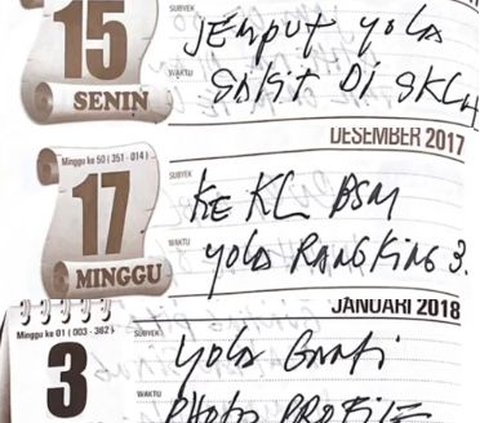 SUBYEK
15 JEMPUT YOLA
WAKTU
SENIN SAKIT DI SKLH
DESEMBER 2017
Minggu ke 50 ( 351 - 014 )
SUBYEK
17 KE KL BSM
WAKTU
MINGGU YOLA RANGKING 3.
JANUARI 2018
Minggu ke 01 ( 003 - 362 )
SUBYEK
3 YOLA GANTI
WAKTU
PHOTO PROFILE